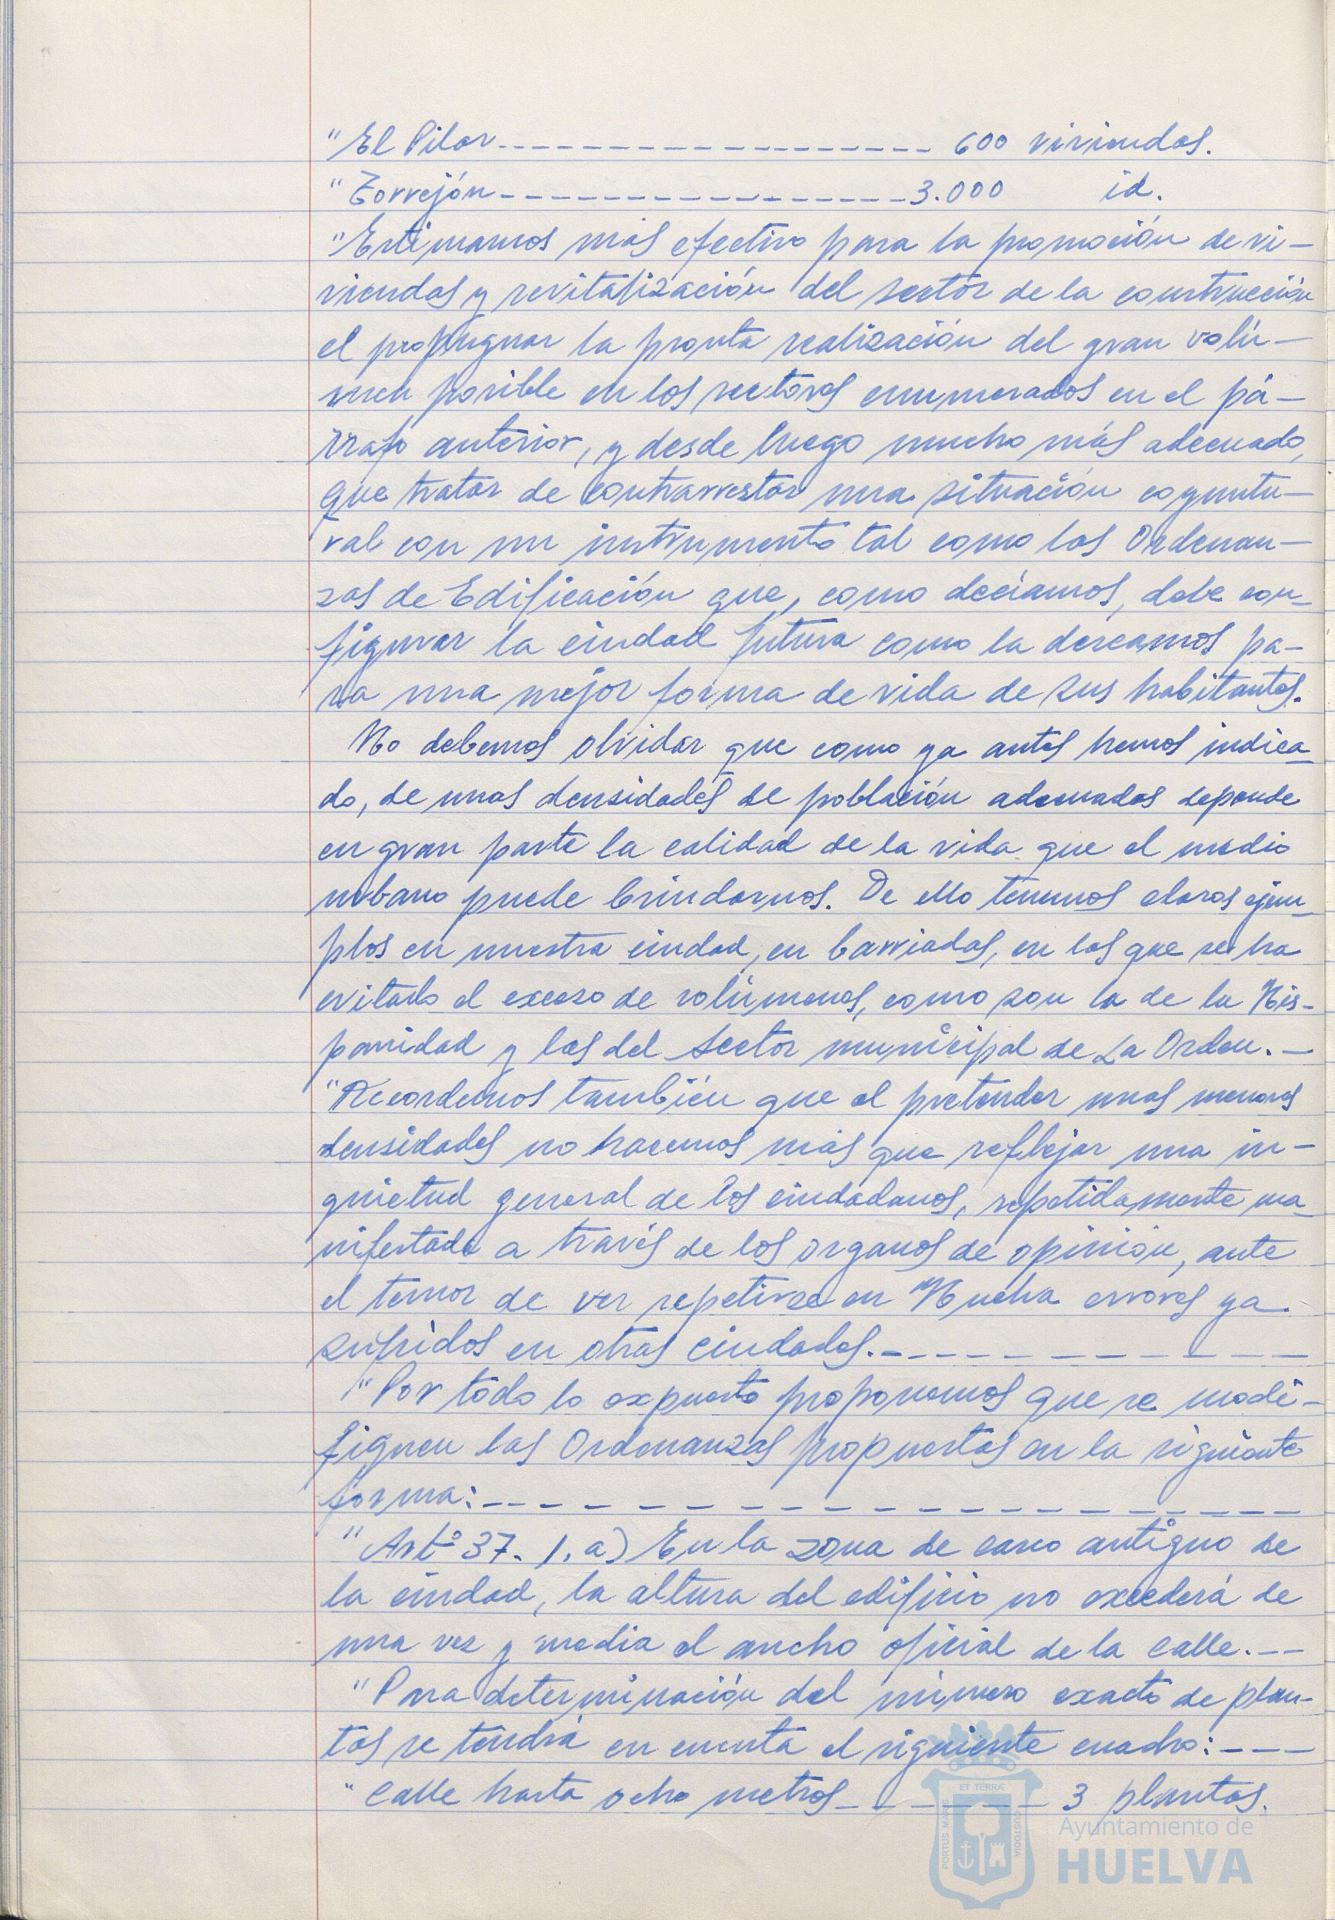 "El Pilar------------------- 600 viviendas.
"Torrejón------------------3.000 id.
"Estimamos más efectivo para la promoción de vi-
viendas y revitalización del sector de la construcción
el propugnar la pronta realización del gran volú-
men posible en los sectores enumerados en el pá-
rrafo anterior, y desde luego mucho más adecuado,
que tratar de contrarrestar una situación coyuntu-
ral con un instrumento tal como las Ordenan-
zas de Edificación que, como decíamos, debe con-
figurar la ciudad futura como la deseamos pa-
ra una mejor forma de vida de sus habitantes.
No debemos olvidar que como ya antes hemos indica-
do, de unas densidades de población adecuadas depende
en gran parte la calidad de la vida que el medio
urbano puede brindarnos. De ello tenemos claros ejem-
plos en nuestra ciudad, en barriadas, en las que se ha
evitado el exceso de volúmenes, como son la de la His-
panidad y las del Sector municipal de La Orden.-
"Recordemos también que al pretender unas menores
densidades no hacemos más que reflejar una in-
quietud general de los ciudadanos, repetidamente ma-
nifestada a través de los organos de opinión, ante
el temor de ver repetirse en Huelva errores ya
sufridos en otras ciudades.---------
"Por todo lo expuesto proponemos que se modi-
fiquen las Ordenanzas propuestas en la siguiente
forma:------------------
"Artº 37. 1. a) En la zona de casco antiguo de
la ciudad, la altura del edificio no excederá de
una vez y media el ancho oficial de la calle.--
"Para determinación del número exacto de plan-
tas se tendrá en cuenta el siguiente cuadro:----
"Calle hasta ocho metros--------- 3 plantas.
PORTUS MARIS ET TERRÆ CUSTODIA
Ayuntamiento de
HUELVA